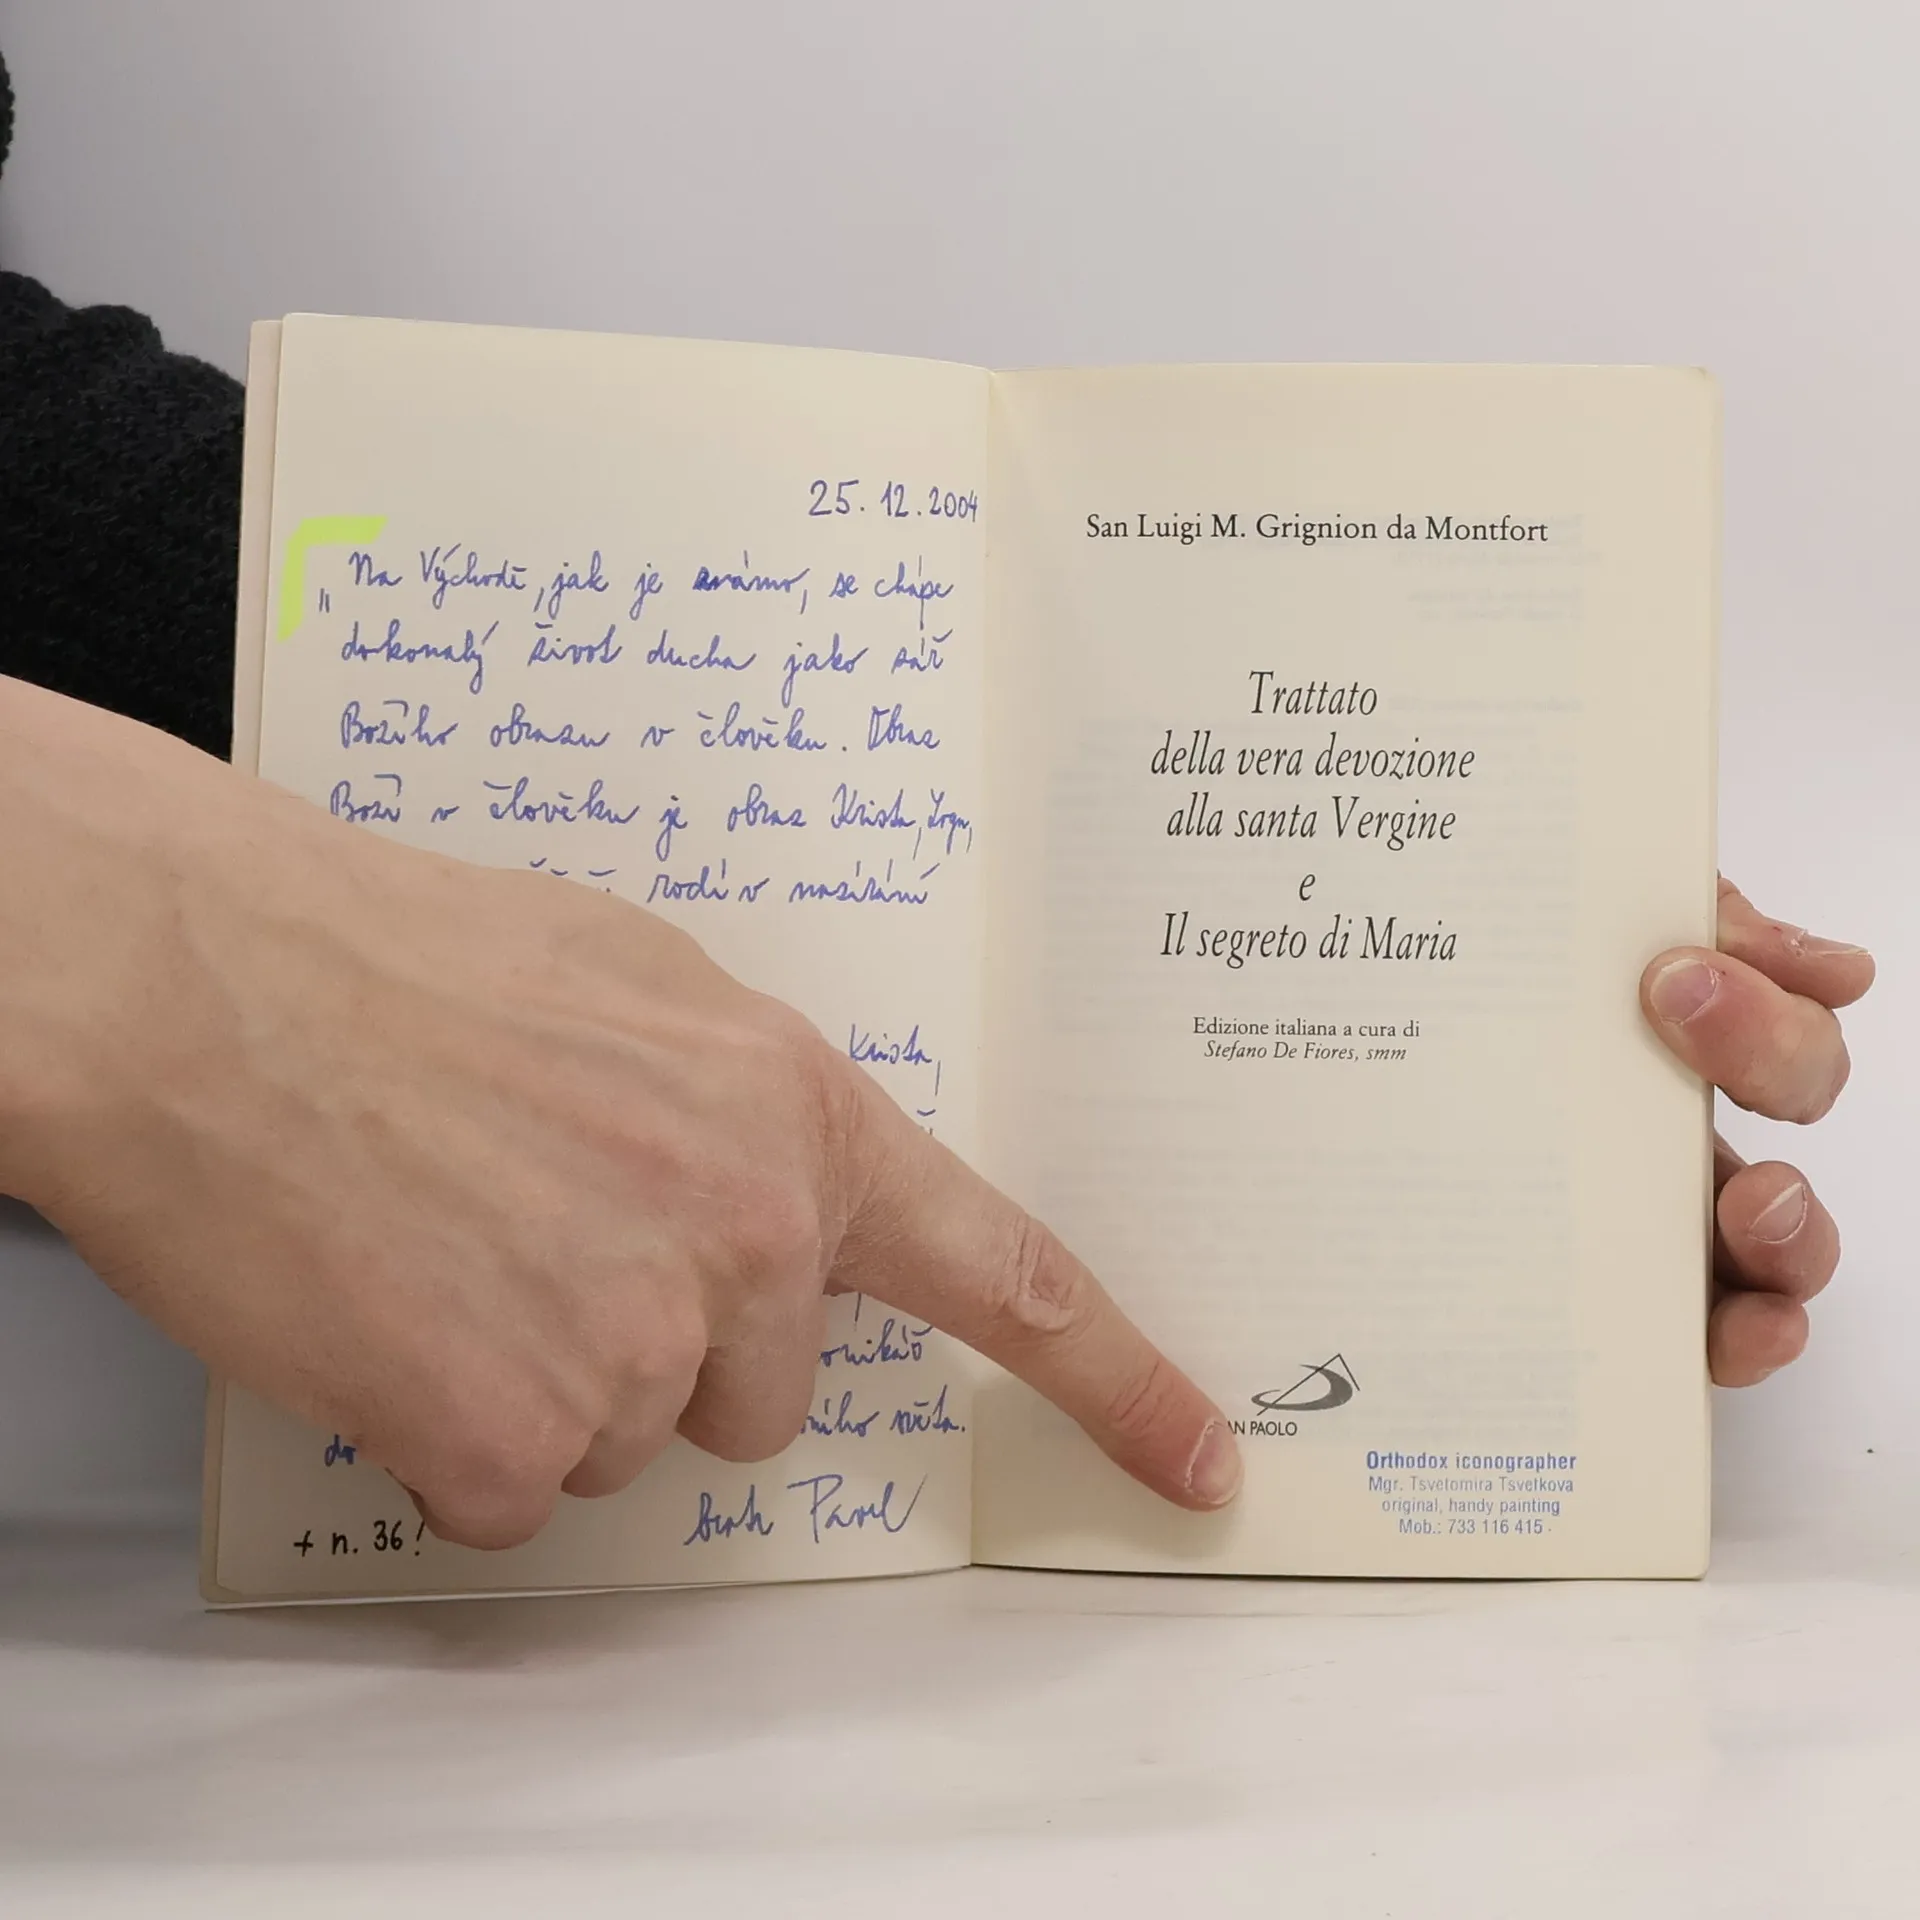 25. 12. 2004
„Na Východě, jak je známo, se chápe
dokonalý život ducha jako zář
Božího obrazu v člověku. Obraz
Boží v člověku je obraz Krista,
rodí v nazírání
Krista,
světa.
do
Pavel
+ n. 36!
San Luigi M. Grignion da Montfort
Trattato
della vera devozione
alla santa Vergine
e
Il segreto di Maria
Edizione italiana a cura di
Stefano De Fiores, smm
AN PAOLO
Orthodox iconographer
Mgr. Tsvetomira Tsvetkova
original, handy painting
Mob.: 733 116 415